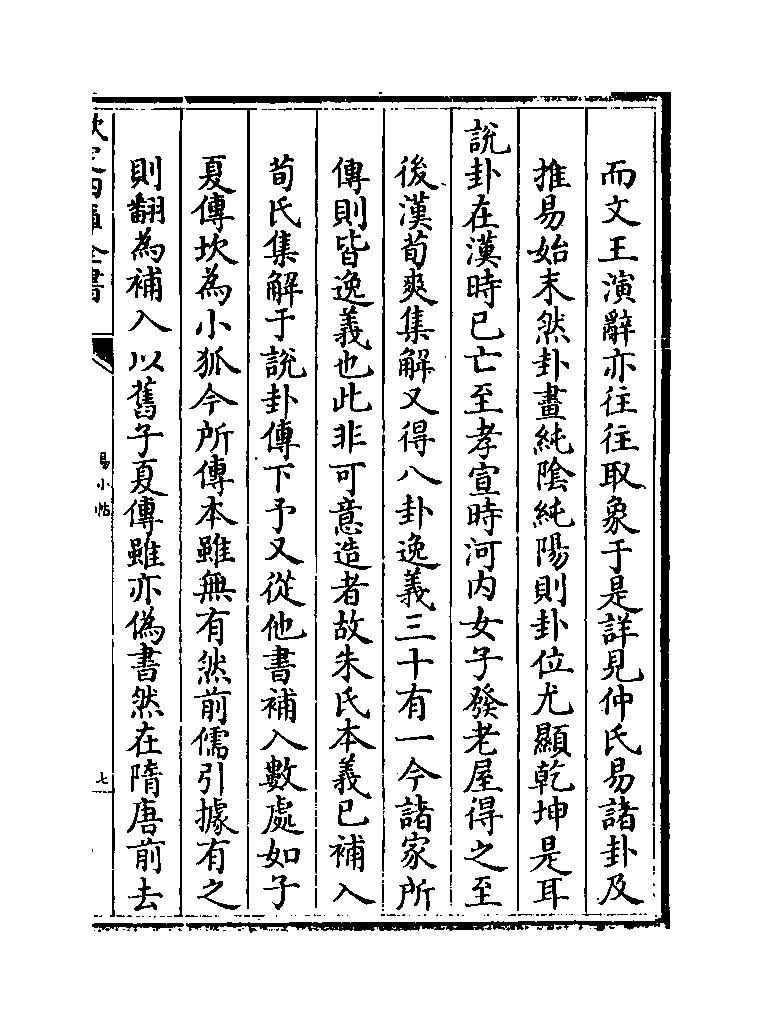 而文王演辭亦往往取象于是詳見仲氏易諸卦及
推易始末然卦畫純陰純陽則卦位尤顯乾坤是耳
說卦在漢時已亡至孝宣時河内女子發老屋得之至
後漢荀爽集解又得八卦逸義三十有一今諸家所
傳則皆逸義也此非可意造者故朱氏本義已補入
荀氏集解于說卦傳下予又從他書補入數處如子
夏傳坎為小狐今所傳本雖無有然前儒引據有之
則翻為補入以舊子夏傳雖亦偽書然在隋唐前去
欽定四庫全書
易小帖
七